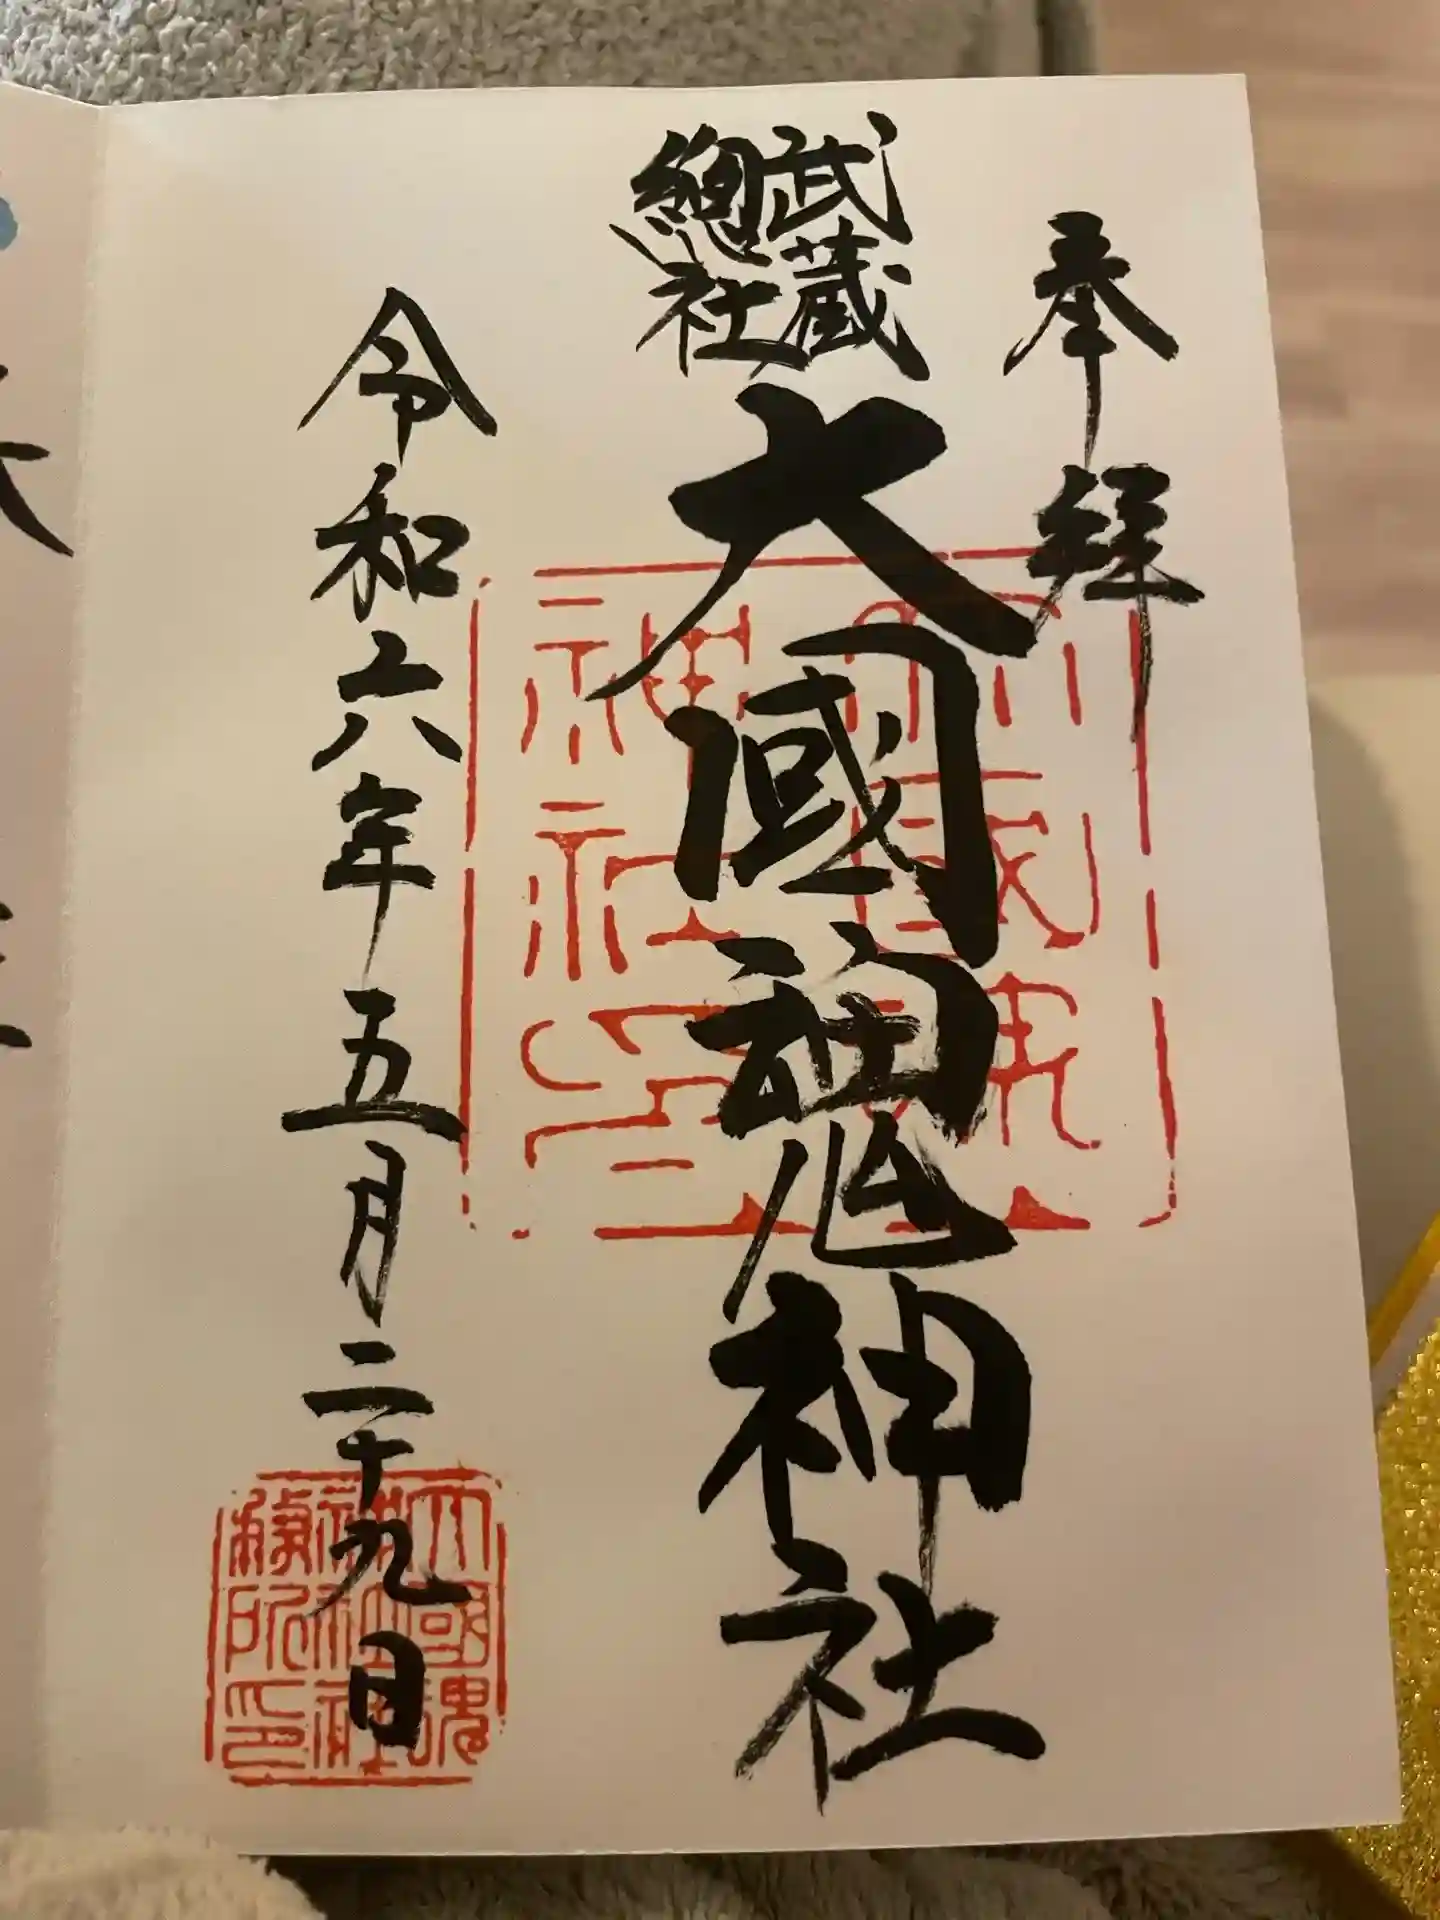 奉拝
武蔵
總社
大國魂神社
令和六年五月二十九日
大國魂
神社印
大國魂
神社
務所印